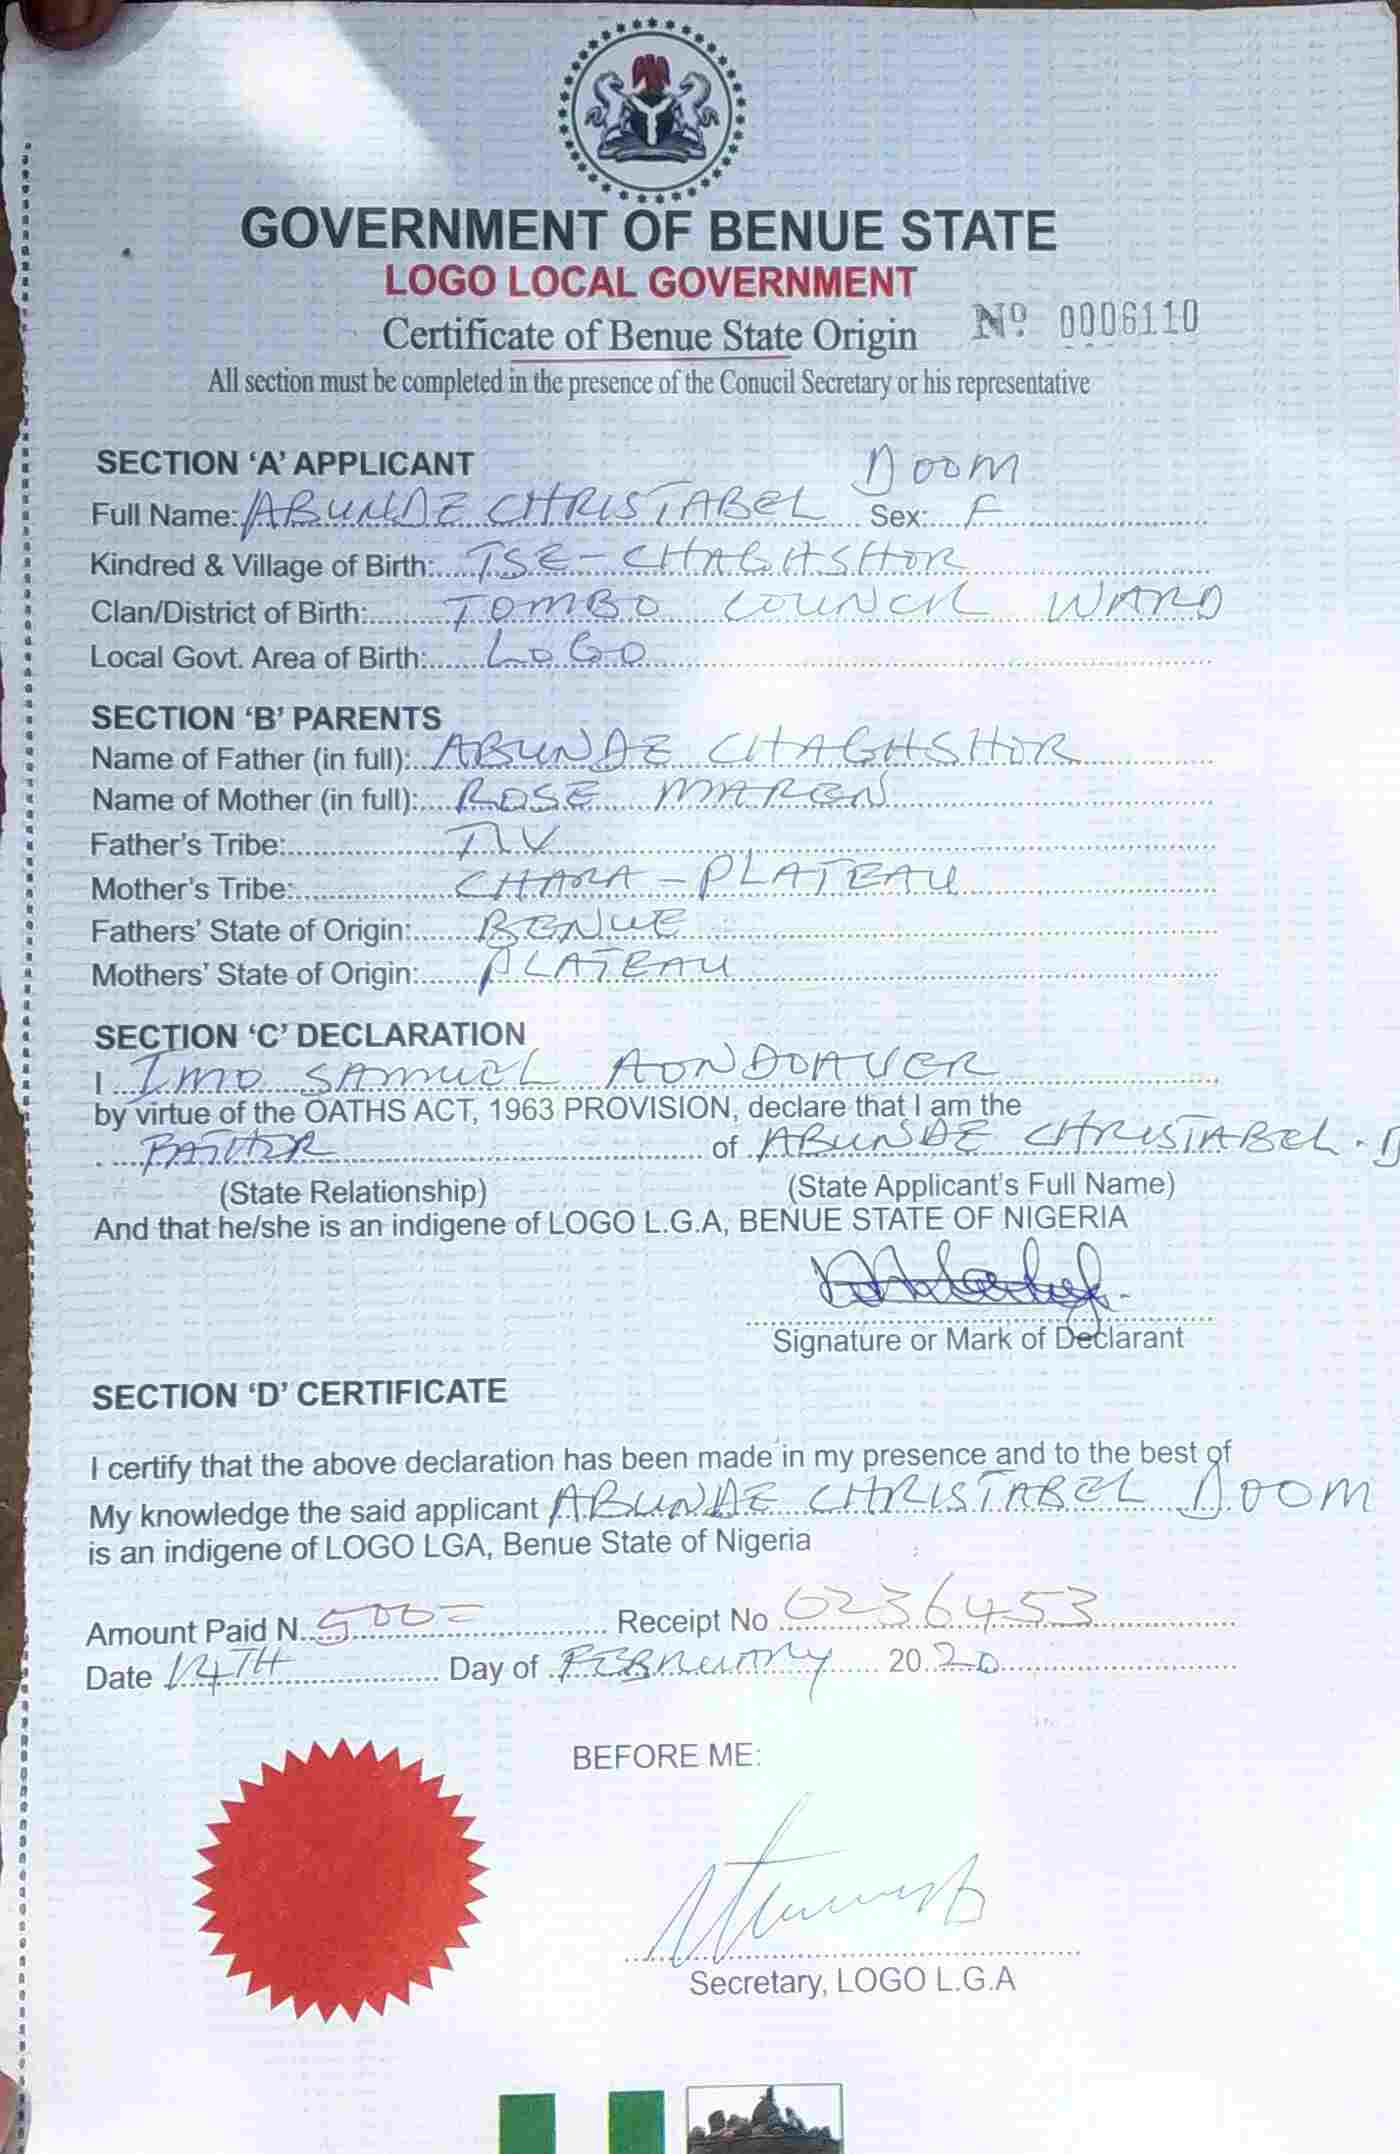 GOVERNMENT OF BENUE STATE
LOGO LOCAL GOVERNMENT
Certificate of Benue State Origin Nº 0006110
All section must be completed in the presence of the Conucil Secretary or his representative
SECTION ‘A’ APPLICANT
Full Name: ABUNDE CHRISTABEL DOOM Sex: F
Kindred & Village of Birth: TSE-CHAGHSHOR
Clan/District of Birth: TOMBO COUNCIL WARD
Local Govt. Area of Birth: LOGO
SECTION ‘B’ PARENTS
Name of Father (in full): ABUNDE CHAGHSHOR
Name of Mother (in full): ROSE MAREN
Father’s Tribe: TIV
Mother’s Tribe: CHARA-PLATEAU
Fathers’ State of Origin: BENUE
Mothers’ State of Origin: PLATEAU
SECTION ‘C’ DECLARATION
I IMO SAMUEL AONDOAVER
by virtue of the OATHS ACT, 1963 PROVISION, declare that I am the
FATHER of ABUNDE CHRISTABEL. D
(State Relationship) (State Applicant’s Full Name)
And that he/she is an indigene of LOGO L.G.A, BENUE STATE OF NIGERIA
Signature or Mark of Declarant
SECTION ‘D’ CERTIFICATE
I certify that the above declaration has been made in my presence and to the best of
My knowledge the said applicant ABUNDE CHRISTABEL DOOM
is an indigene of LOGO LGA, Benue State of Nigeria
Amount Paid N 500= Receipt No 0236453
Date 14TH Day of FEBRUARY 2020
BEFORE ME:
Secretary, LOGO L.G.A